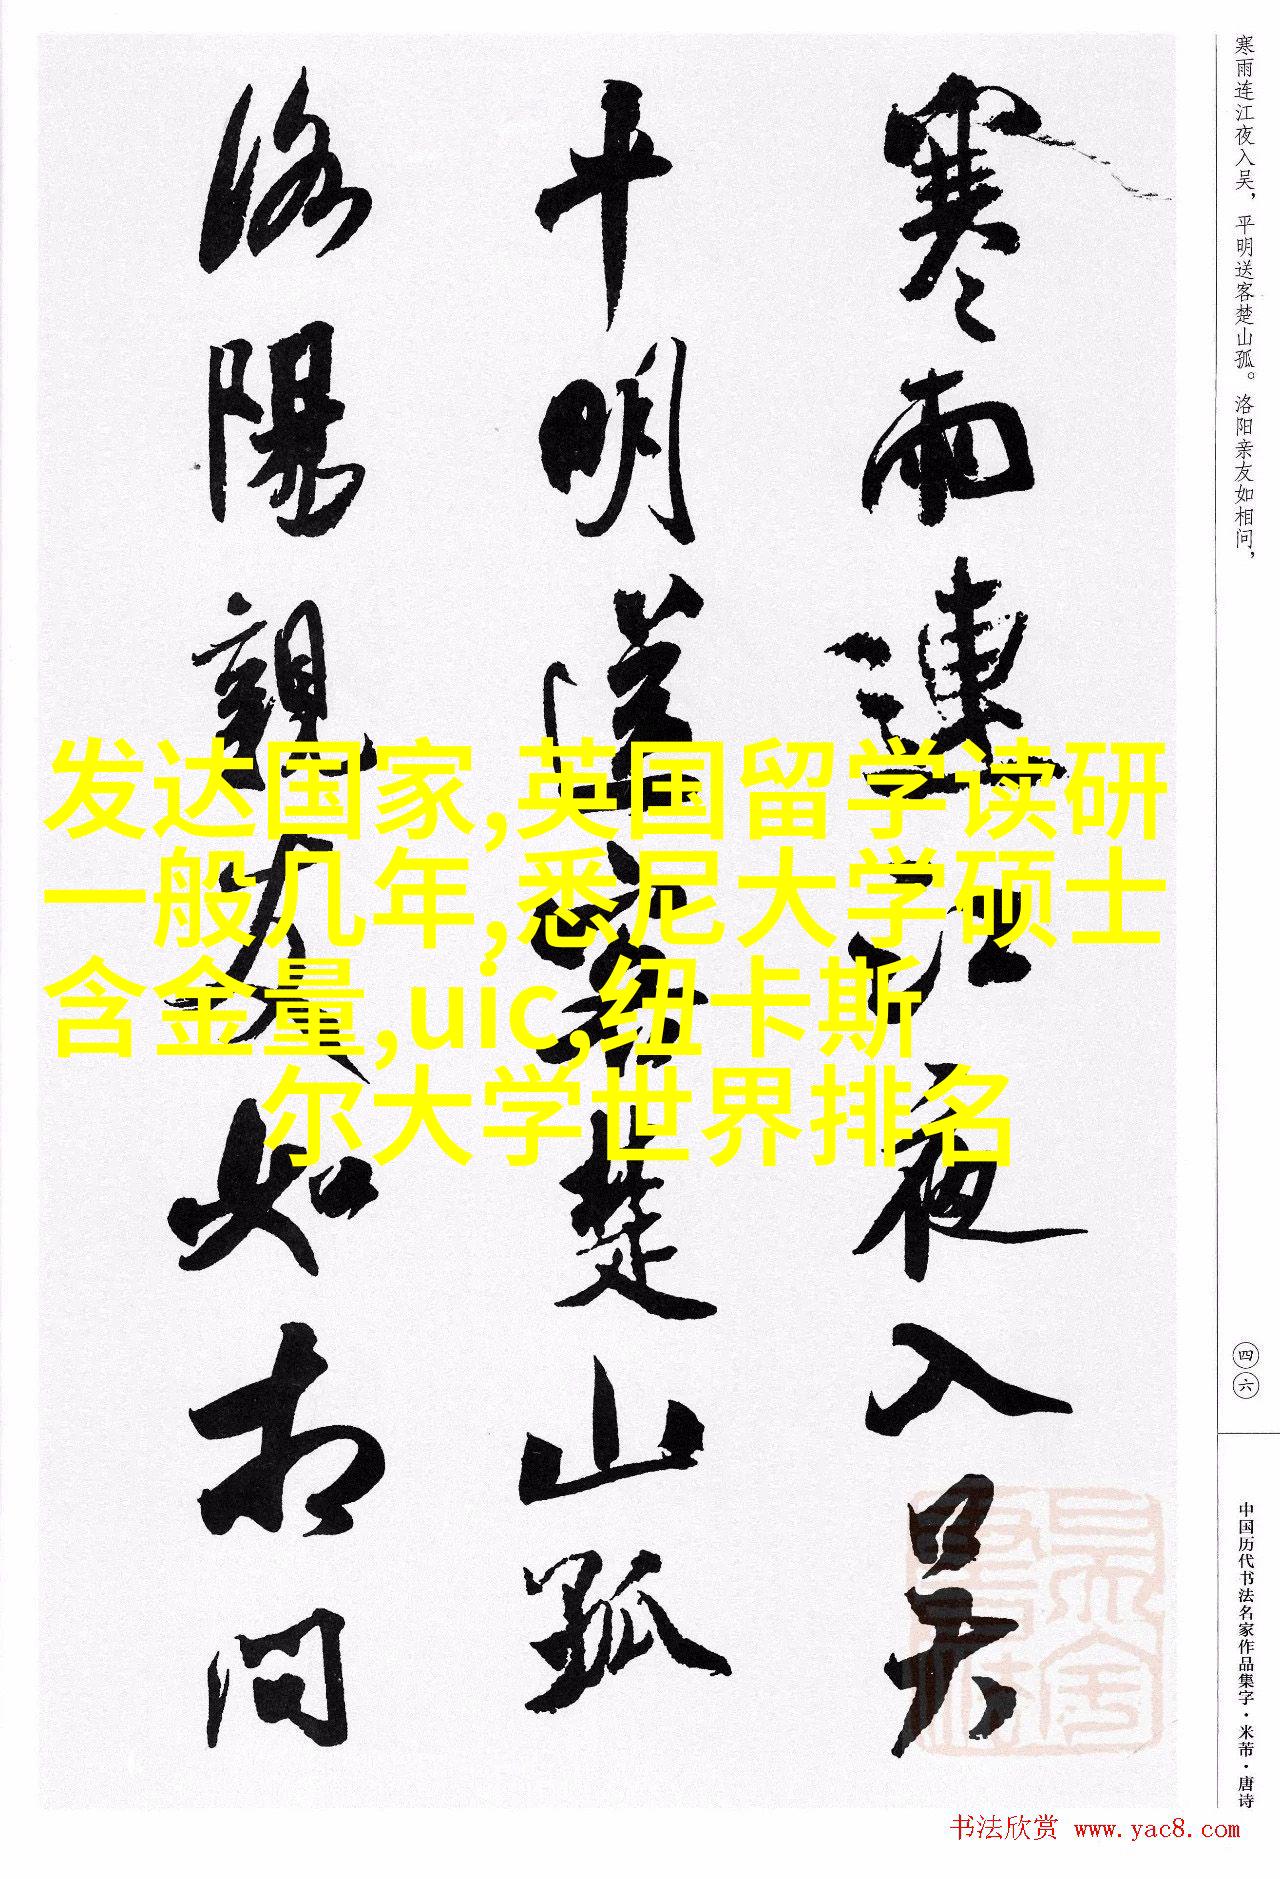 寒雨连江夜入吴，平明送客楚山孤。洛阳亲友如相问，
四六
中国历代书法名家作品集字·米芾·唐诗
寒雨連江夜入吴
平明送客楚山孤
洛陽親友如相問
发达国家,英国留学读研
一般几年,悉尼大学硕士
含金量,uic,纽卡斯
尔大学世界排名
书法欣赏 www.yac8.com